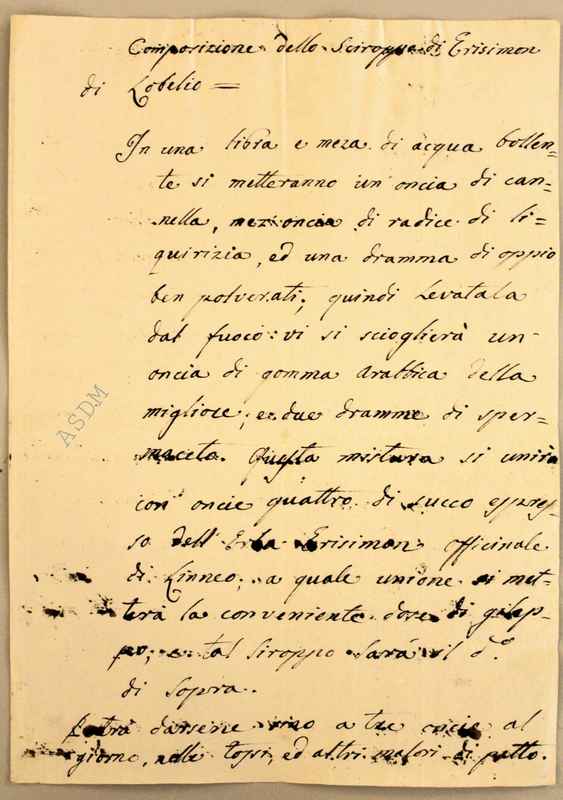 Composizione dello Sciroppo di Erisimon
di Lobelio =
In una libra e meza di acqua bollen=
te si metteranno un'oncia di can=
nella, mez: oncia di radice di li=
quirizia, ed una dramma di oppio
ben polverati; quindi levatala
dal fuoco: vi si scioglierà un-
oncia di gomma Arabbica della
migliore; e: due dramme di sper=
maceto. Questa mistura si unirà
con oncie quattro di succo espres=
so dell'Erba Erisimon officinale
di Linneo; a quale unione si met=
terà la conveniente dose di gilep=
po; e: tal Siroppo sarà il d.º
di sopra.
Potrà darsene sino a tre oncie al
giorno, nelle tossi, ed altri malori di petto.
A.S.D.M